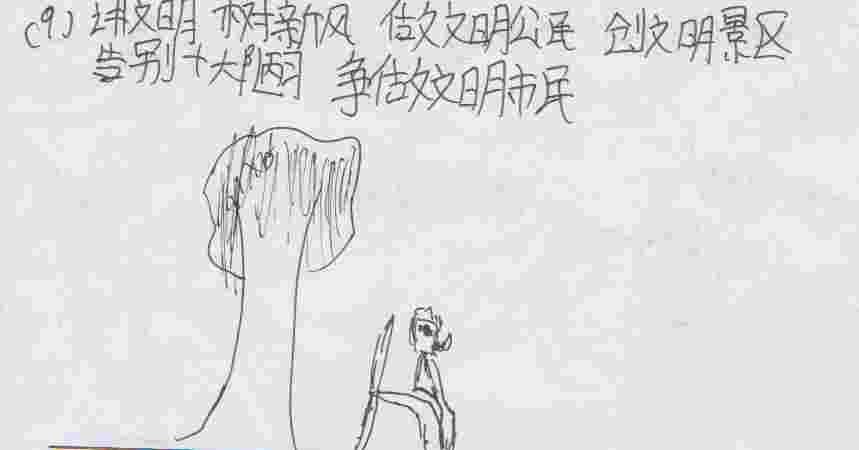 (9) 讲文明 树新风 做文明公民 创文明景区
告别十大陋习 争做文明市民